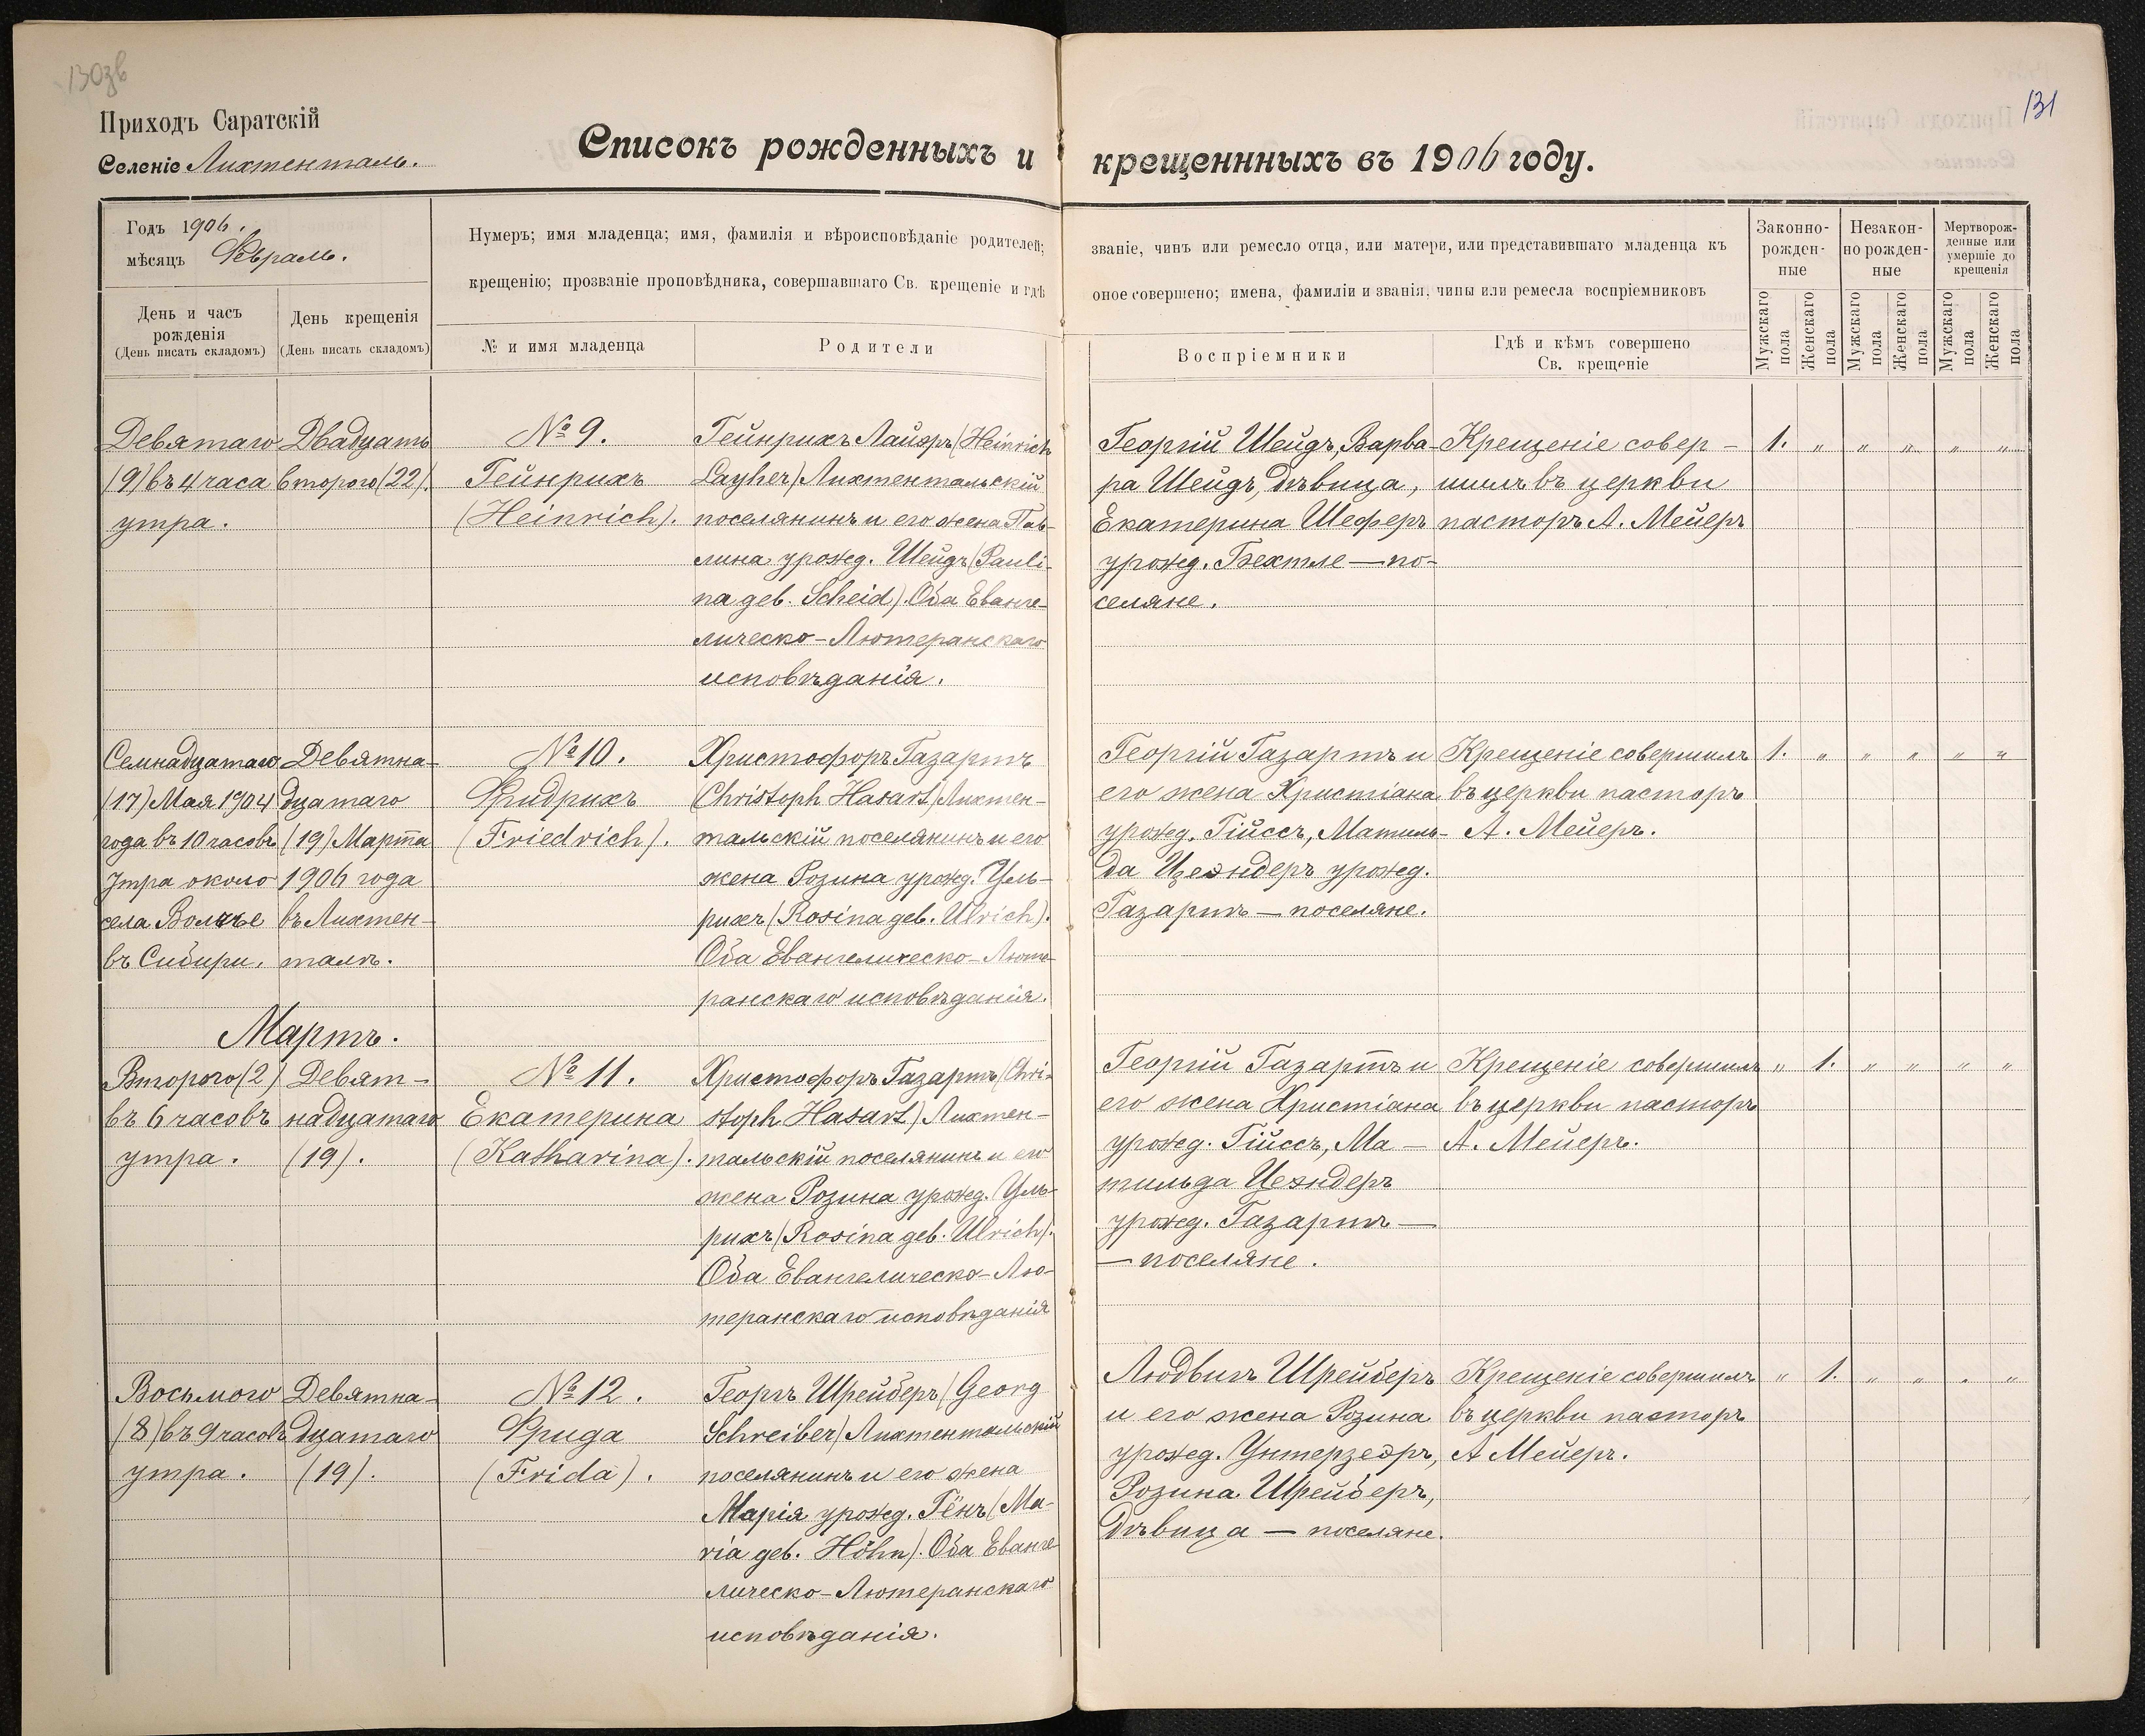 130зв
131
Приходъ Саратскій
Селеніе Лихтенталь.
Списокъ рожденныхъ и крещеннныхъ въ 1906 году.
Годъ 1906.
мѣсяцъ Февраль.
День и часъ рожденія
(День писать складомъ)
День крещенія
(День писать складомъ)
Нумеръ; имя младенца; имя, фамилія и вѣроисповѣданіе родителей;
крещенію; прозваніе проповѣдника, совершавшаго Св. крещеніе и гдѣ
№ и имя младенца
Родители
званіе, чинъ или ремесло отца, или матери, или представившаго младенца къ
оное совершено; имена, фамиліи и званія, чины или ремесла воспріемниковъ
Воспріемники
Гдѣ и кѣмъ совершено
Св. крещеніе
Законно-
рожден-
ные
Незакон-
но рожден-
ные
Мертворож-
денные или
умершіе до
крещенія
Мужскаго пола
Женскаго пола
Мужскаго пола
Женскаго пола
Мужскаго пола
Женскаго пола
Девятаго
(9) въ 4 часа
утра.
Двадцать
второго (22).
№ 9.
Гейнрихъ
(Heinrich).
Гейнрихъ Лайэръ (Heinrich
Layher) Лихтентальскій
поселянинъ и его жена Пав-
лина урожд. Шейдъ (Pauli-
na geb. Scheid). Оба Еванге-
лическо-Лютеранскаго
исповѣданія.
Георгій Шейдъ, Варва-
ра Шейдъ, дѣвица,
Екатерина Шеферъ
урожд. Бехтле — по-
селяне.
Крещеніе совер-
шилъ въ церкви
пасторъ А. Мейеръ
1. „ „ „ „ „
Семнадцатаго
(17) Мая 1904
года въ 10 часовъ
утра около
села Волчье
въ Сибири.
Девятна-
дцатаго
(19) Марта
1906 года
въ Лихтен-
талѣ.
№ 10.
Фридрихъ
(Friedrich).
Христофоръ Газартъ
(Christoph Hasart) Лихтен-
тальскій поселянинъ и его
жена Розина урожд. Уль-
рихъ (Rosina geb. Ulrich).
Оба Евангелическо-Люте-
ранскаго исповѣданія.
Георгій Газартъ и
его жена Христіана
урожд. Гійссъ, Матиль-
да Цеэндеръ урожд.
Газартъ — поселяне.
Крещеніе совершилъ
въ церкви пасторъ
А. Мейеръ.
1. „ „ „ „ „
Мартъ.
Второго (2)
въ 6 часовъ
утра.
Девят-
надцатаго
(19).
№ 11.
Екатерина
(Katharina).
Христофоръ Газартъ (Chri-
stoph Hasart) Лихтен-
тальскій поселянинъ и его
жена Розина урожд. Уль-
рихъ (Rosina geb. Ulrich).
Оба Евангелическо-Лю-
теранскаго исповѣданія
Георгій Газартъ и
его жена Христіана
урожд. Гійссъ, Ма-
тильда Цеэндеръ
урожд. Газартъ —
— поселяне.
Крещеніе совершилъ
въ церкви пасторъ
А. Мейеръ.
„ 1. „ „ „ „
Восьмого
(8) въ 9 часовъ
утра.
Девятна-
дцатаго
(19).
№ 12.
Фрида
(Frida).
Георгъ Шрейберъ (Georg
Schreiber) Лихтентальскій
поселянинъ и его жена
Марія урожд. Гёнъ (Ma-
ria geb. Höhn). Оба Еванге-
лическо-Лютеранскаго
исповѣданія.
Людвигъ Шрейберъ
и его жена Розина
урожд. Унтерзеэръ,
Розина Шрейберъ,
дѣвица — поселяне.
Крещеніе совершилъ
въ церкви пасторъ
А Мейеръ.
„ 1. „ „ „ „